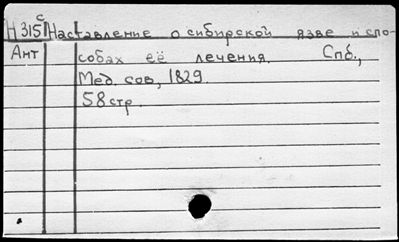 Н 315с Наставление о сибирской язве и спо-
Ант собах её лечения. Спб.,
Мед. сов, 1829.
58 стр.